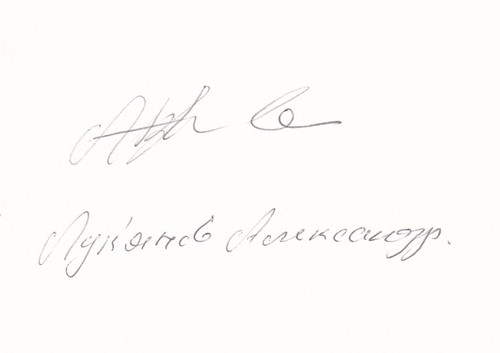 Лук'янов Александр.